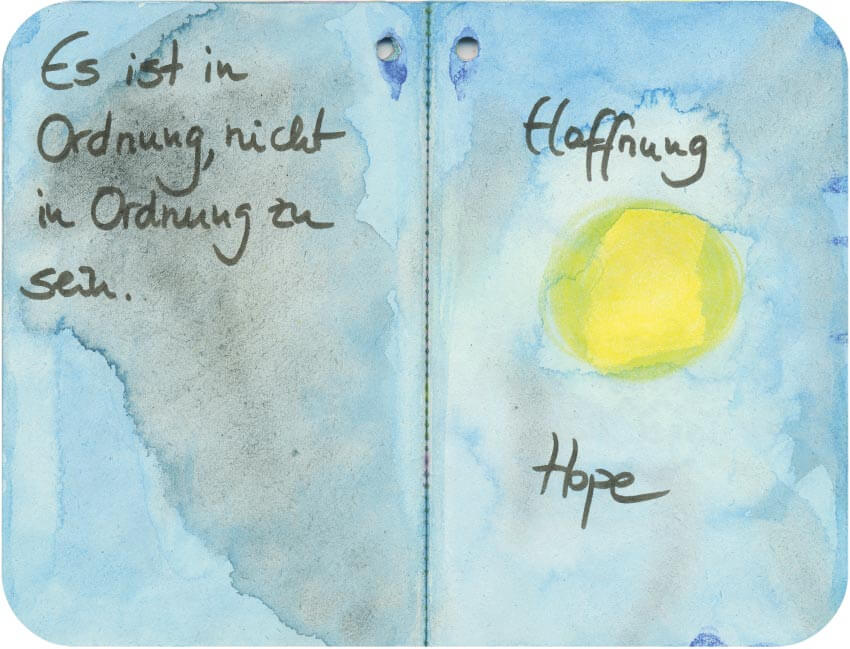 Es ist in
Ordnung, nicht
in Ordnung zu
sein.
Hoffnung
Hope